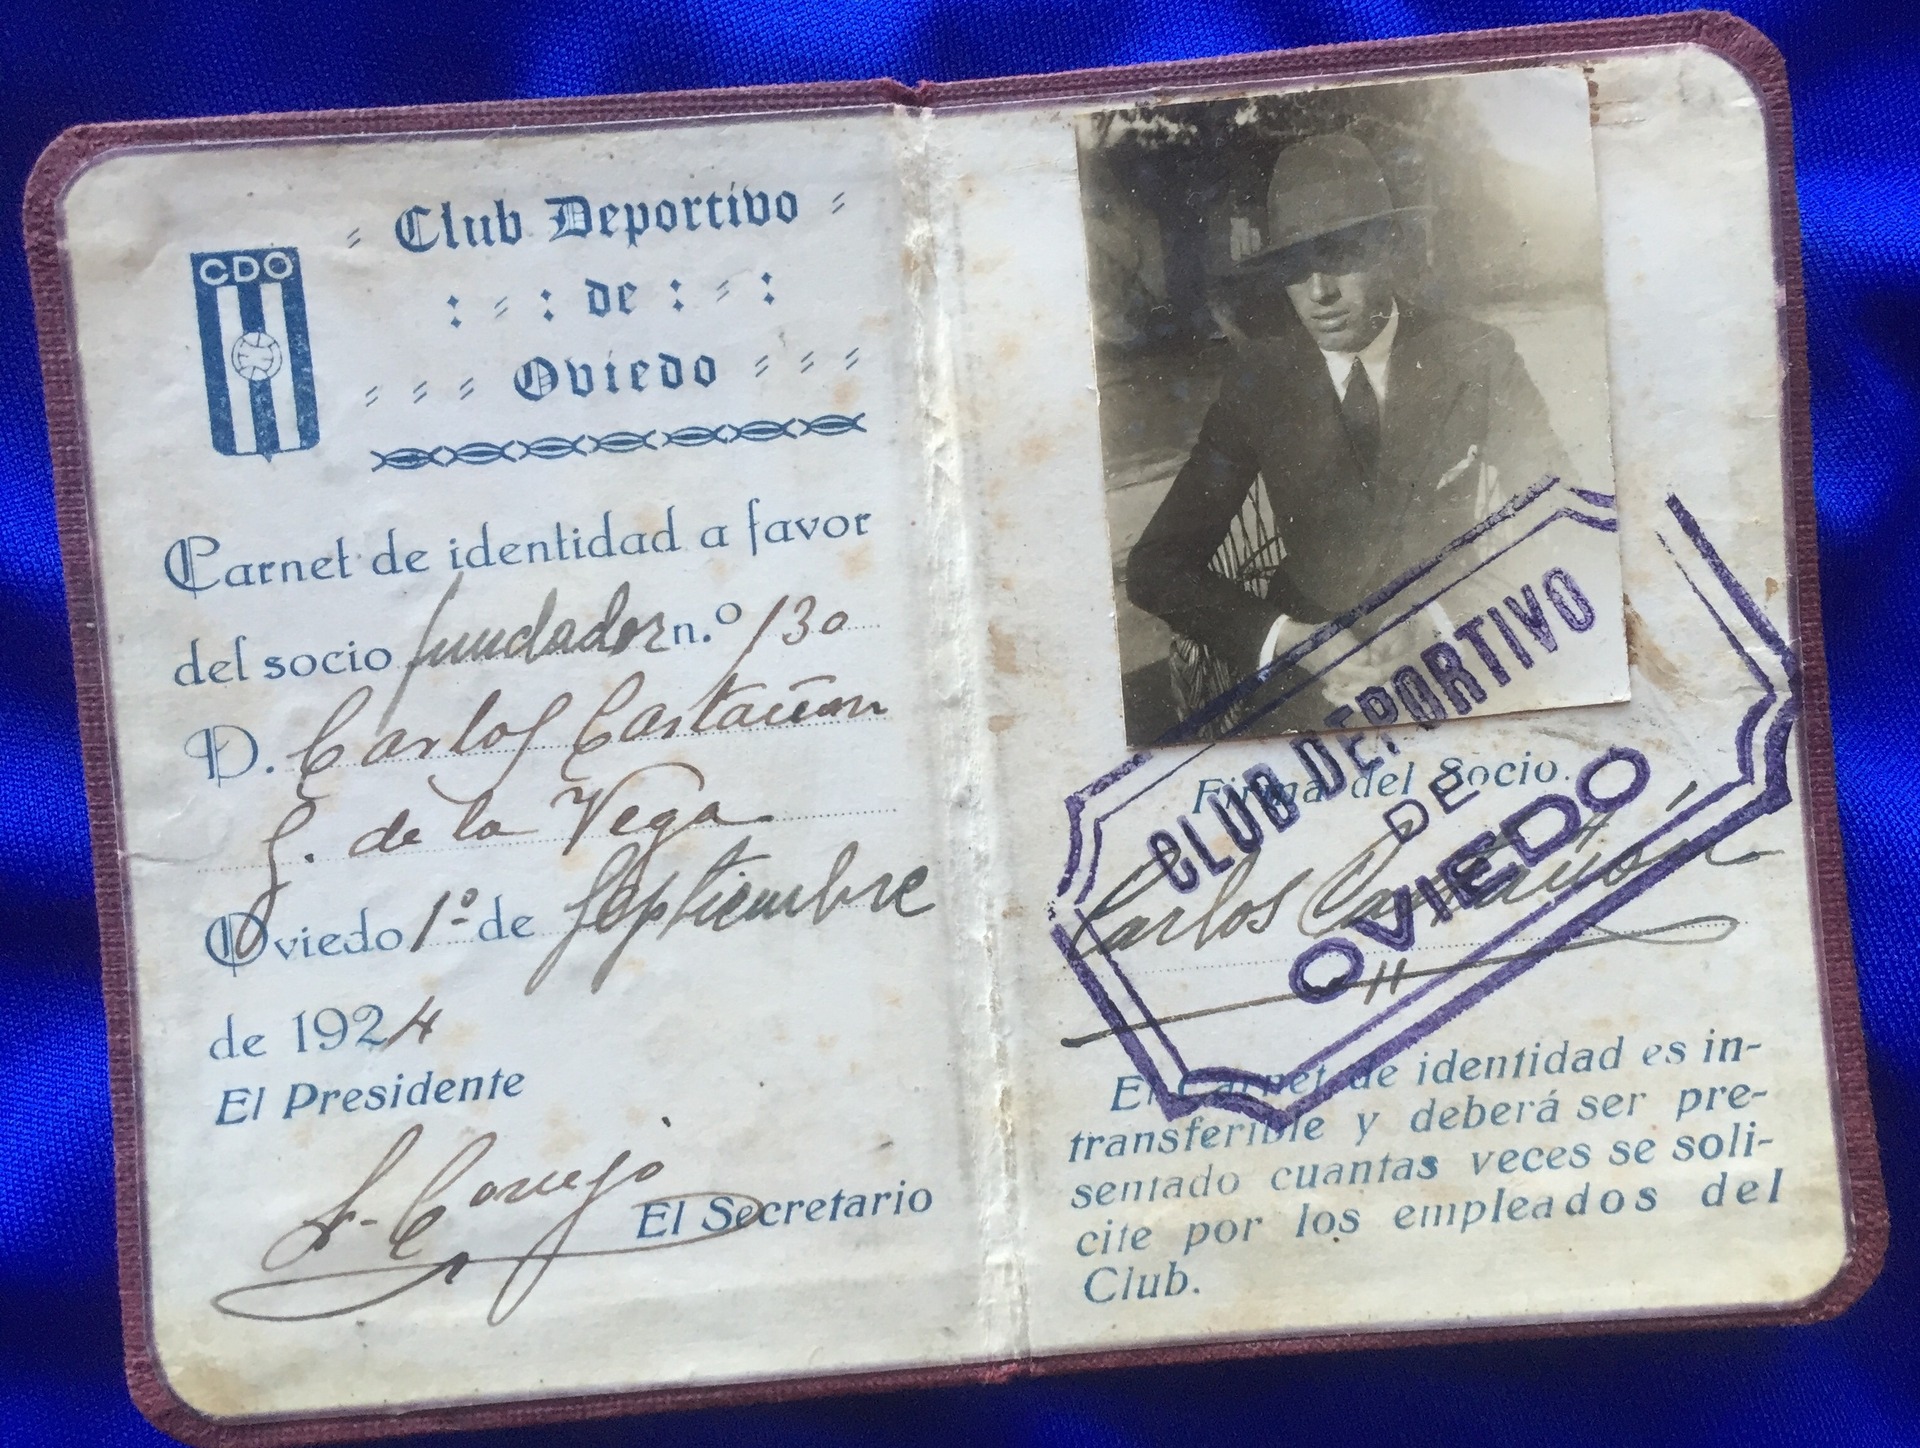 CDO
Club Deportivo
de
Oviedo
Carnet de identidad a favor
del socio fundador n.º 130
D. Carlos Castañon
G. de la Vega
Oviedo 1º de Septiembre
de 1924
El Presidente
Cornejo
El Secretario
CLUB DEPORTIVO
DE
OVIEDO
Firma del Socio.
Carlos Castañón
El Carnet de identidad es in-
transferible y deberá ser pre-
sentado cuantas veces se soli-
cite por los empleados del
Club.